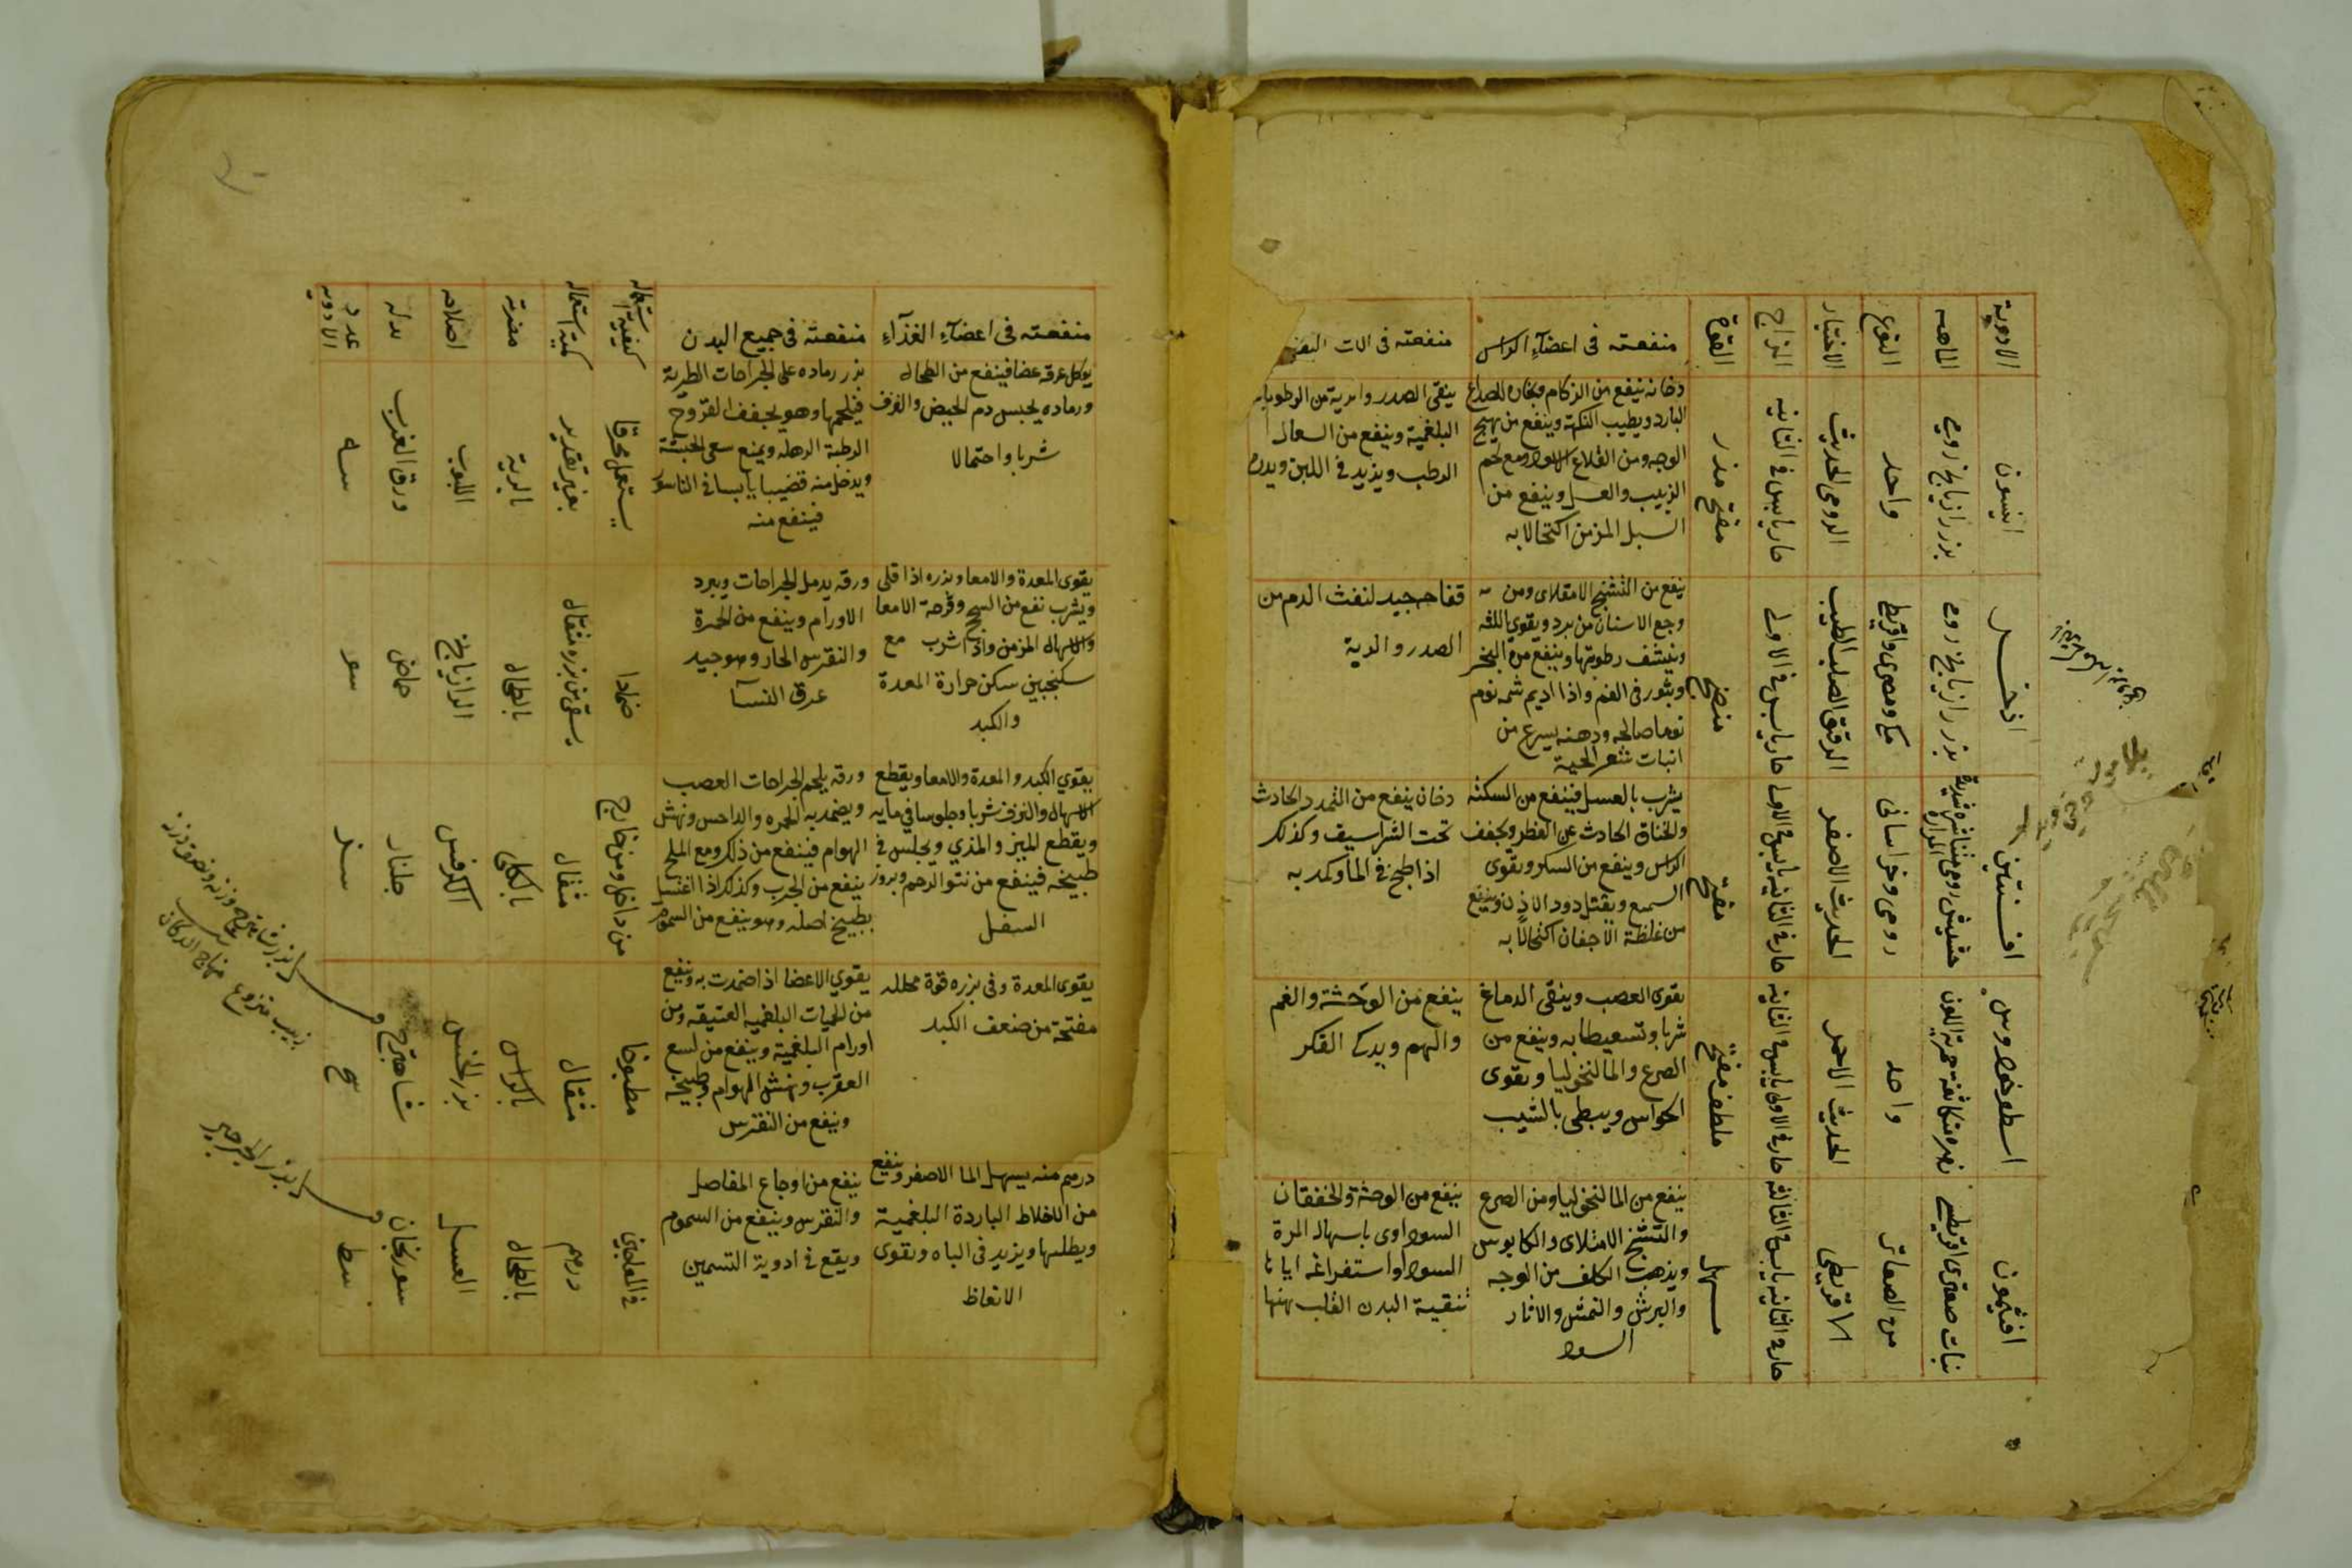 الادوية
الماهيه
النوع
الاختيار
المزاج
القوة
منفعته في اعضآء الراس
منفعته في الات النفس
انيسون
بزر رازيانج رومي
واحد
الرومي الحديث
حار يابس في الثانيه
مفتح مدر
دخانه ينفع من الزكام وبخاره للصداع
البارد ويطيب النكهة وينفع من تهيج
الوجه ومن القلاع الاسود ومع لحم
الزبيب والعسل وينفع من
السبل المزمن اكتحالا به
ينقى الصدر والرية من الرطوبات
البلغمية وينفع من السعال
الرطب ويزيد في اللبن ويدره
اذخر
بزر رازيانج رومي
مكي ومصري واقريطي
الرقيق الصلب الطيب
حار يابس في الاولى
منضج
ينفع من التشنج الامتلاى ومن
وجع الاسنان من برد ويقوي اللثه
وينشف رطوبتها وينفع من البخر
وبثور في الفم واذا اديم شمه نوم
نوما صالحا ودهنه يسرع من
انبات شعر الحية
فقاحه جيد لنفث الدم من
الصدر والرية
افسنتين
حشيش رومي متناثره شديدة المرارة
رومي وخراساني
الحديث الاصفر
حار في الثانيه يابس في الاولى
مفتح
يشرب بالعسل فينفع من السكته
والخناق الحادث عن الفطر ويجفف
الراس وينفع من السكر ويقوى
السمع ويقتل دود الاذن وينفع
من غلظة الاجفان اكتحالا به
دخان ينفع من التمدد الحادث
تحت الشراسيف وكذلك
اذا طبخ في الما وكمد به
اسطوخودوس
زهره متكاثفة حمرية اللون
واحد
الحديث الاحمر
حار في الاولى يابس في الثانيه
ملطف مفتح
يقوى العصب وينقى الدماغ
شربا وتسعيطا به وينفع من
الصرع والمالنخوليا ويقوى
الحواس ويبطى بالشيب
ينفع من الوحشة والغم
والهم ويذكى الفكر
افتيمون
نبات صعترى اقريطي
من الصعاتر
الاقريطي
حار في الثانيه يابس في الثالثه
مسهل
ينفع من المالنخوليا ومن الصرع
والتشنج الامتلاى والكابوس
ويذهب الكلف من الوجه
والبرش والنمش والاثار
السود
ينفع من الوحشة والخفقان
السوداوى باسهال المرة
السودا واستفراغه اياها
تنقية البدن القلب منها
منفعته في اعضآء الغذآء
منفعته في جميع البدن
كيفية استعماله
كمية استعماله
مضرته
اصلاحه
بدله
عدد الادويه
يوكل عرقه غضا فينفع من الطحال
ورماده يحبس دم الحيض والنزف
شربا واحتمالا
بزر رماده على الجراحات الطرية
فيلحمها وهو يجفف القروح
الرطبة الرهله ويمنع سعى الخبيثة
ويدخل منه قضيبا يابسا في الناسور
فينفع منه
يستعمل محرقا
بغير تقدير
بالرية
اللبوب
ورق الغرب
سه
يقوى المعدة والامعا وبزره اذا قلى
وشرب نفع من السحج وقرحة الامعا
والاسهال المزمن واذا شرب مع
سكنجبين سكن حرارة المعدة
والكبد
ورقه يدمل الجراحات ويبرد
الاورام وينفع من الحمرة
والنقرس الحار وهو جيد
عرق النسا
ضمادا
يسقى من بزره مثقال
بالطحال
الرازيانج
حماض
سو
يقوي الكبد والمعدة والامعا ويقطع
الاسهال والنزف شربا وجلوسا في مايه
ويقطع المني والمذي ويجلس في
طبيخه فينفع من نتو الرحم وبروز
السفل
ورقه يلحم الجراحات العصب
ويضمد به الحمره والداحس ونهش
الهوام فينفع من ذلك ومع الملح
ينفع من الجرب وكذلك اذا اغتسل
بطبيخ اصله وهو ينفع من السموم
من داخل ومن خارج
مثقال
بالكلى
الكرفس
جلنار
سز
يقوى المعدة وفي بزره قوة محللة
مفتحة من ضعف الكبد
يقوي الاعضا اذا ضمدت به وينفع
من الحميات البلغمية العتيقه ومن
اورام البلغمية وينفع من لسع
العقرب ونهش الهوام وطبيخه
وينفع من النقرس
مطبوخا
مثقال
بالراس
بزر الخس
شاهترج
سح
درهم منه يسهل الما الاصفر وينفع
من الاخلاط الباردة البلغمية
ويطلسها ويزيد في الباه ويقوى
الانعاظ
ينفع من اوجاع المفاصل
والنقرس وينفع من السموم
ويقع في ادوية التسمين
في المعاجين
درهم
بالطحال
العسل
سورنجان
سط
زبيب منزوع
منهاج الدكان
بزر الجرجير